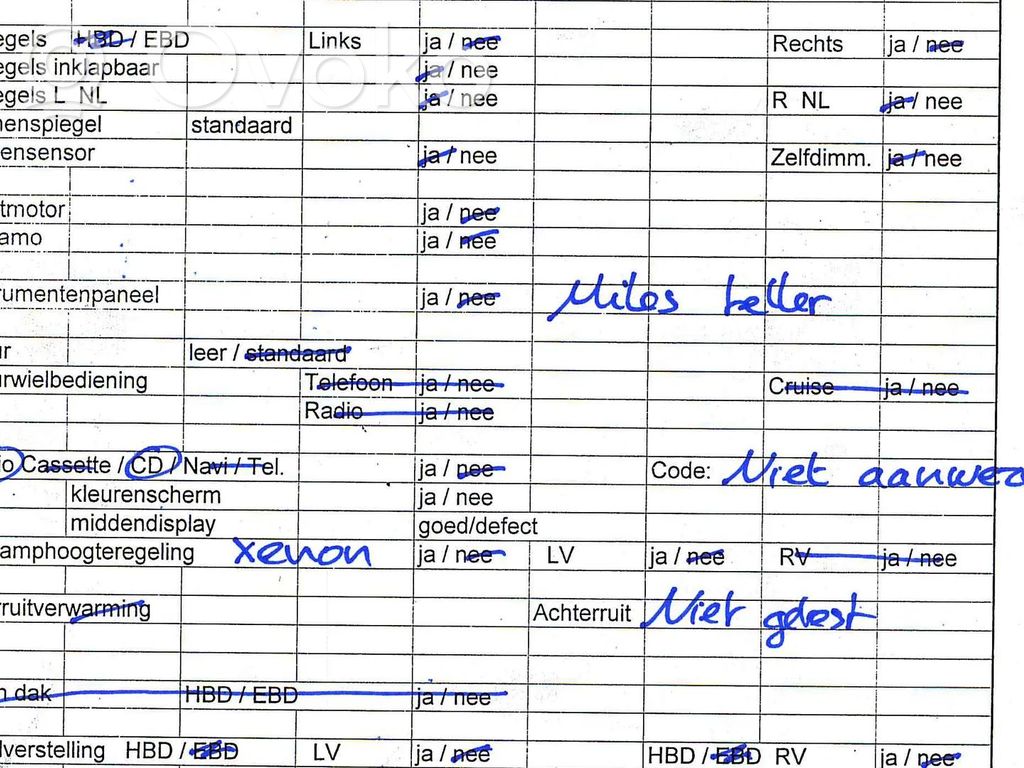 egels HBD / EBD Links ja / nee Rechts ja / nee
egels inklapbaar ja / nee
egels L NL ja / nee R NL ja / nee
nenspiegel standaard
ensensor ja / nee Zelfdimm. ja / nee
tmotor ja / nee
amo ja / nee
rumentenpaneel ja / nee Miles teller
ur leer / standaard
urwielbediening Telefoon ja / nee Cruise ja / nee
Radio ja / nee
io Cassette / CD / Navi / Tel. ja / nee Code: Niet aanwez
kleurenscherm ja / nee
middendisplay goed/defect
amphoogteregeling xenon ja / nee LV ja / nee RV ja / nee
rruitverwarming Achterruit Niet getest
n dak HBD / EBD ja / nee
lverstelling HBD / EBD LV ja / nee HBD / EBD RV ja / nee
Ovoko